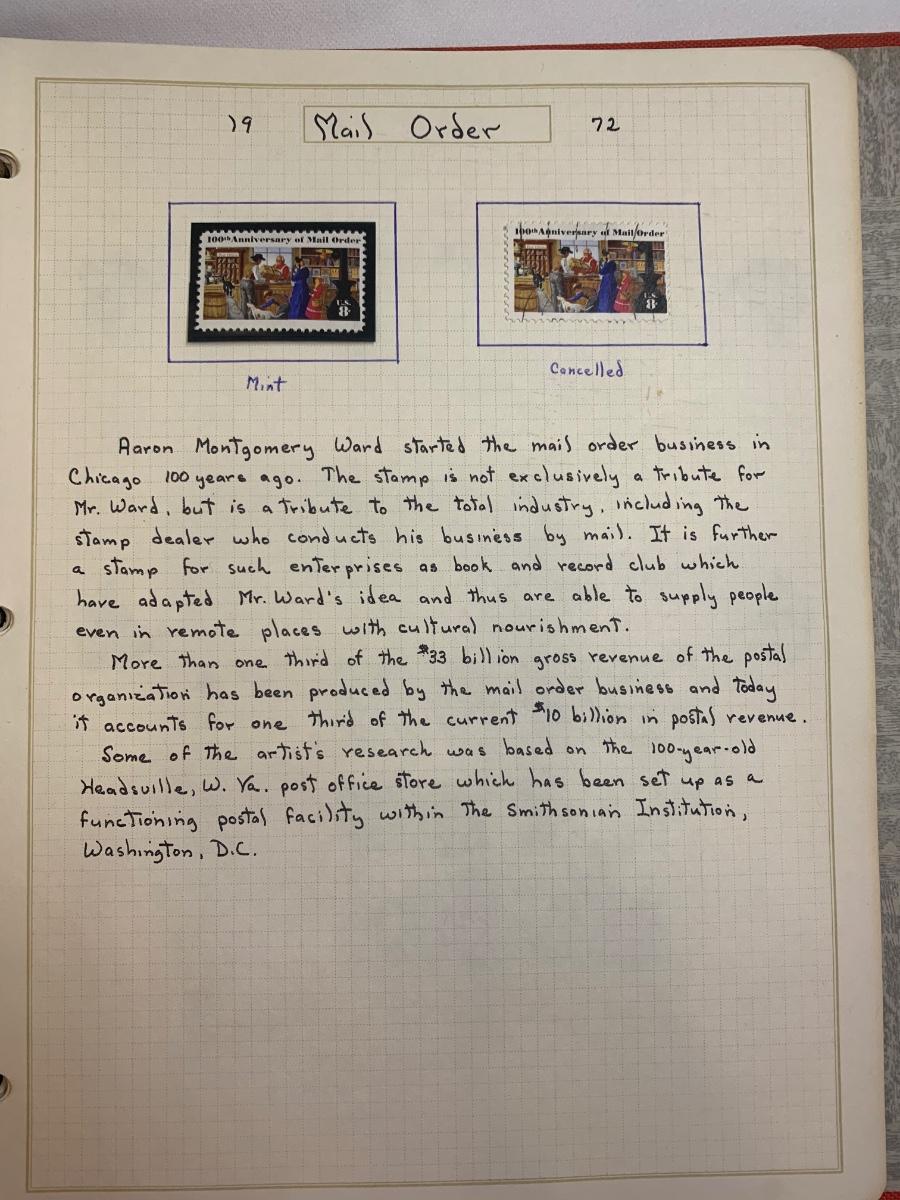 19 Mail Order 72
100th Anniversary of Mail Order
U.S.
8¢
100th Anniversary of Mail Order
U.S.
8¢
Mint
Cancelled
Aaron Montgomery Ward started the mail order business in
Chicago 100 years ago. The stamp is not exclusively a tribute for
Mr. Ward, but is a tribute to the total industry, including the
stamp dealer who conducts his business by mail. It is further
a stamp for such enterprises as book and record club which
have adapted Mr. Ward's idea and thus are able to supply people
even in remote places with cultural nourishment.
More than one third of the $33 billion gross revenue of the postal
organization has been produced by the mail order business and today
it accounts for one third of the current $10 billion in postal revenue.
Some of the artist's research was based on the 100-year-old
Headsville, W. Va. post office store which has been set up as a
functioning postal facility within the Smithsonian Institution,
Washington, D.C.